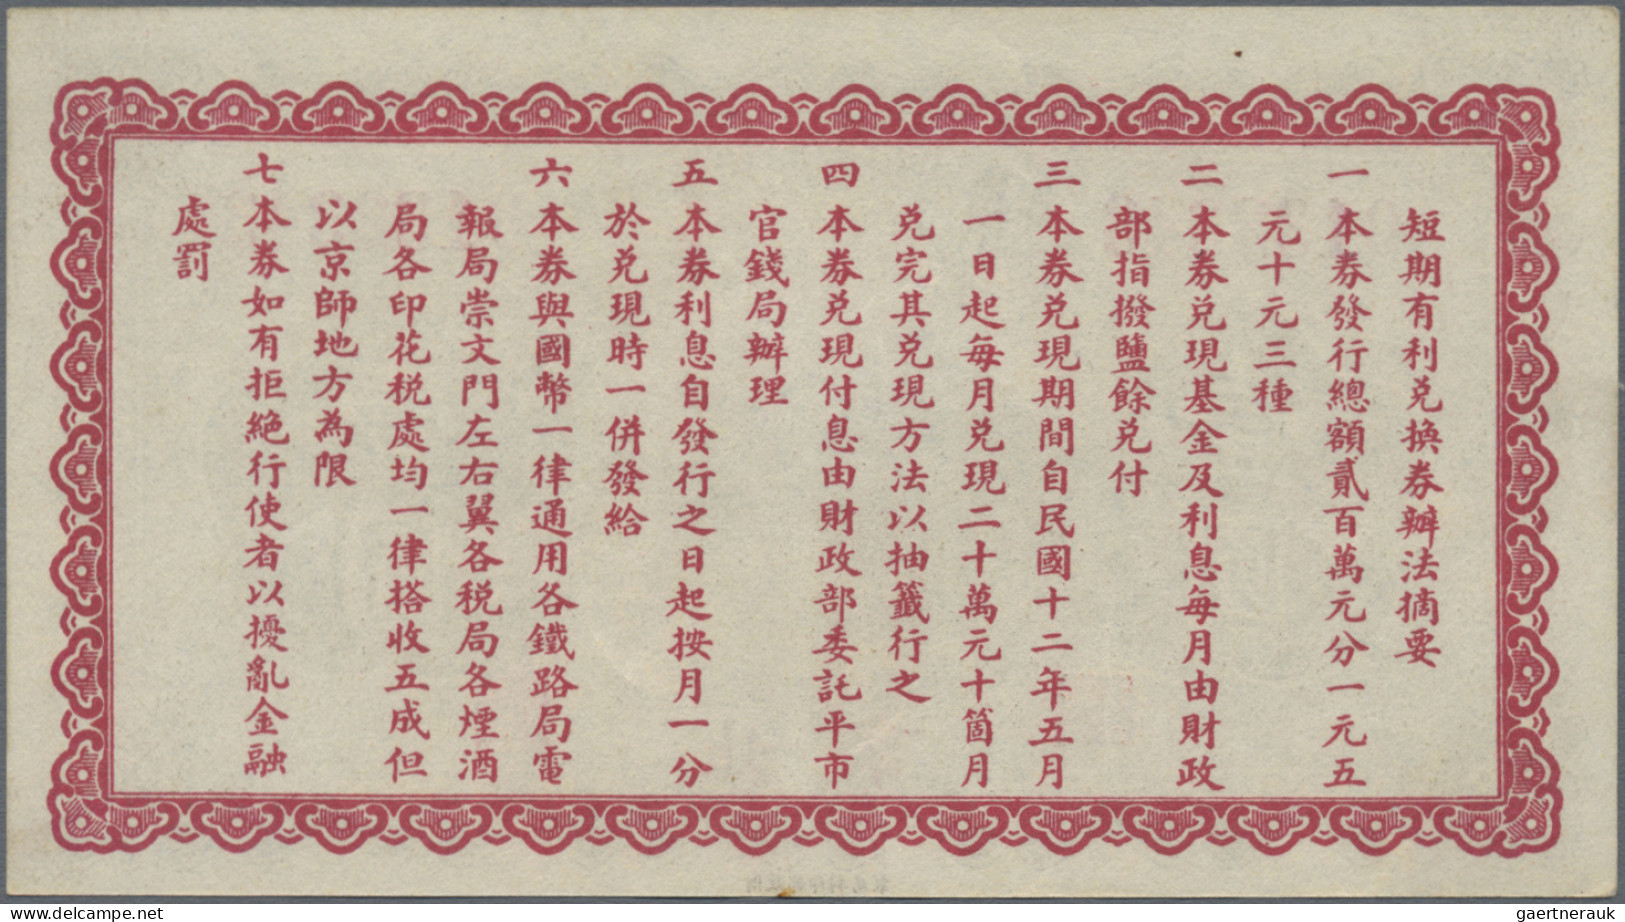 短期有利兑換券辦法摘要
一 本券發行總額貳百萬元分一元五
元十元三種
二 本券兑現基金及利息每月由財政
部指撥鹽餘兑付
三 本券兑現期間自民國十二年五月
一日起每月兑現二十萬元十箇月
兑完其兑現方法以抽籤行之
四 本券兑現付息由財政部委託平市
官錢局辦理
五 本券利息自發行之日起按月一分
於兑現時一併發給
六 本券與國幣一律通用各鐵路局電
報局崇文門左右翼各税局各煙酒
局各印花税處均一律搭收五成但
以京師地方為限
七 本券如有拒絶行使者以擾亂金融
處罰
hipstamp.com/store/
gaertnerauk